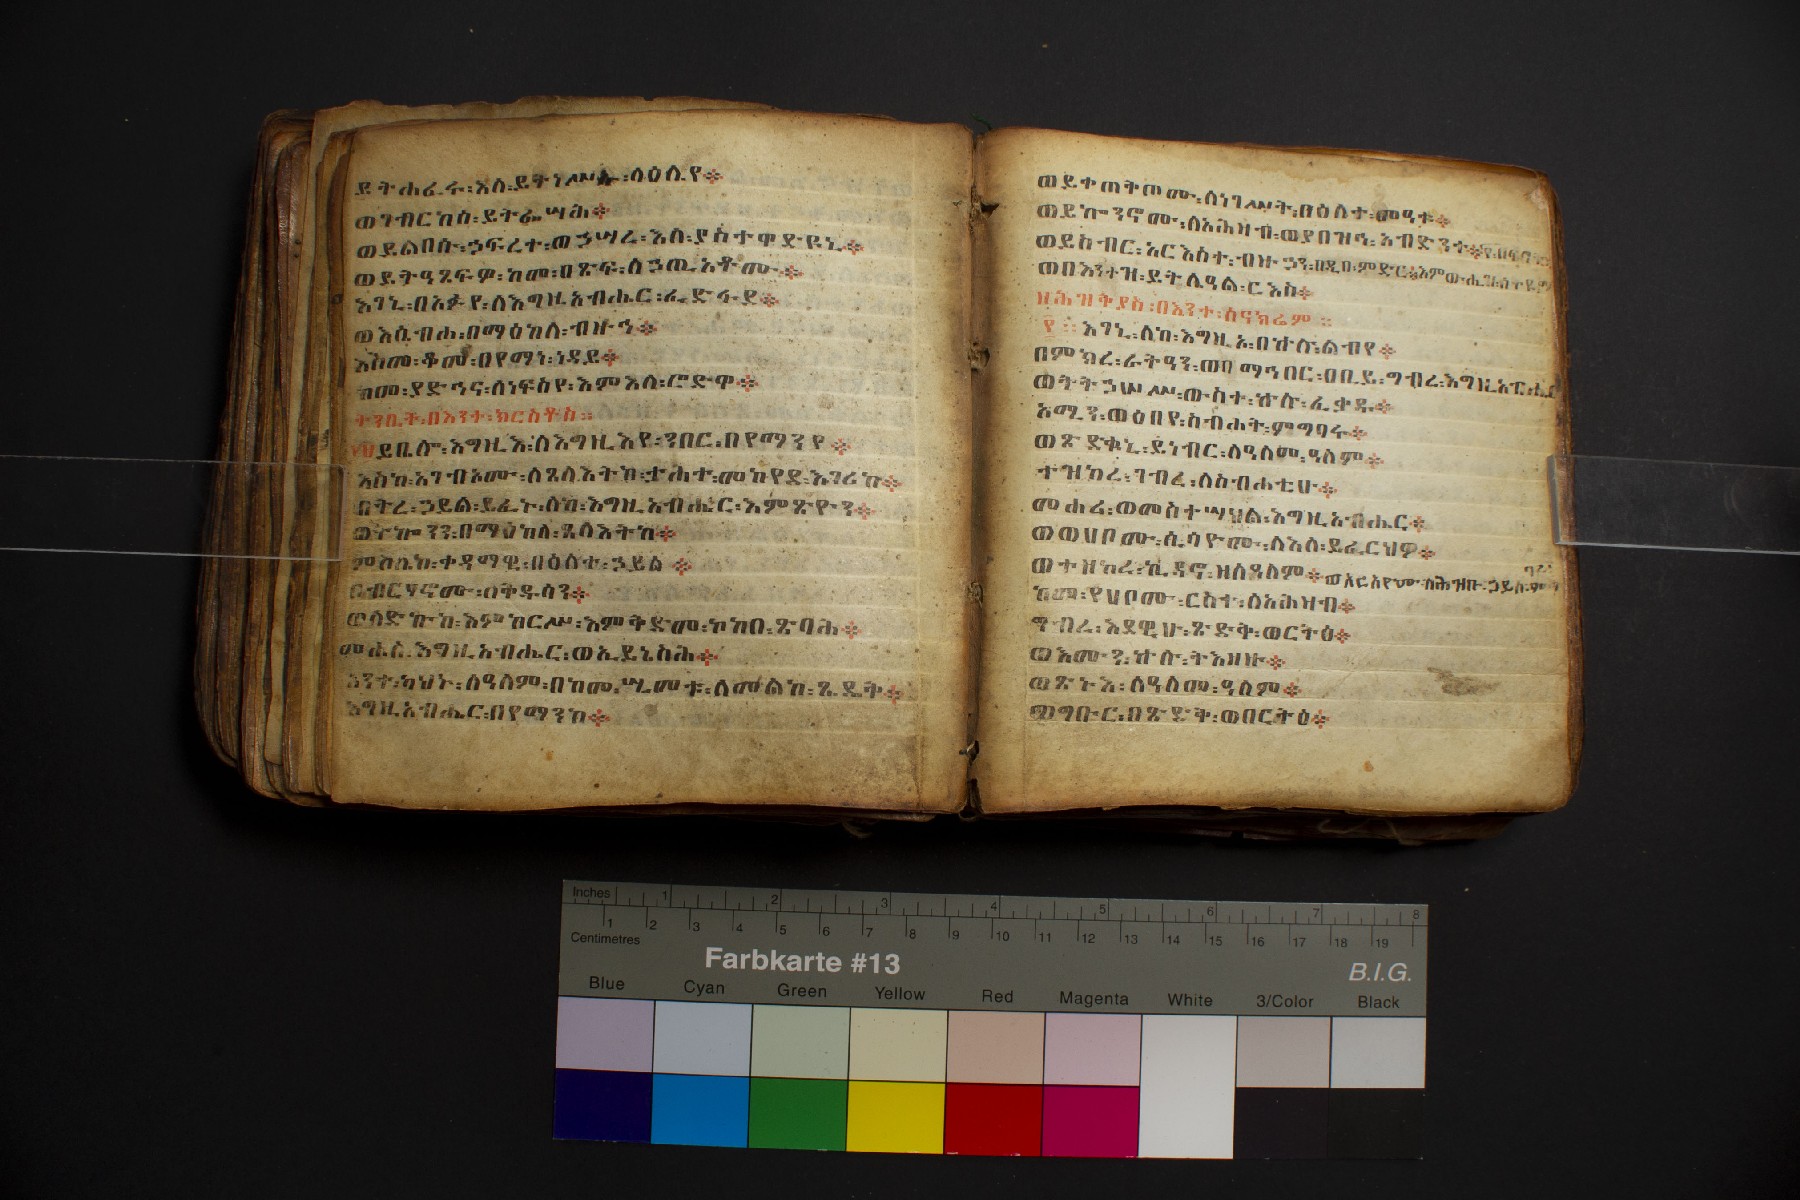 ይትሐፈሩ፡እለ፡ይትነሥኡ፡ላዕሌየ፨
ወገብርከሰ፡ይትፌሣሕ፨
ወይልበሱ፡ኃፍረተ፡ወኃሣረ፡እለ፡ያስተዋድዩኒ፨
ወይትዓጸፍዎ፡ከመ፡በጽፍ፡ለኃጢአቶሙ፨
እገኒ፡በአፉየ፡ለእግዚአብሔር፡ፈድፋደ፨
ወእሴብሖ፡በማዕከለ፡ብዙኅ፨
እስመ፡ቆመ፡በየማነ፡ነዳይ፨
ከመ፡ያድኅና፡ለነፍስየ፡እምእለ፡ሮድዋ፨
ትንቢት፡በእንተ፡ክርስቶስ።
ይቤሎ፡እግዚእ፡ለእግዚእየ፡ንበር፡በየማንየ፨
እስከ፡አገብኦሙ፡ለጸላእትከ፡ታሕተ፡መከየደ፡እገሪከ፨
በትረ፡ኃይል፡ይፌኑ፡ለከ፡እግዚአብሔር፡እምጽዮን፨
ወትኴንን፡በማዕከለ፡ጸላእትከ፨
ምስሌከ፡ቀዳማዊ፡በዕለተ፡ኃይል፨
በብርሃኖሙ፡ለቅዱሳን፨
ወለድኩከ፡እምከርሥ፡እምቅድመ፡ኮከበ፡ጽባሕ፨
መሐለ፡እግዚአብሔር፡ወኢይኔስሕ፨
አንተ፡ካህኑ፡ለዓለም፡በከመ፡ሢመቱ፡ለመልከ፡ጼዴቅ፨
እግዚአብሔር፡በየማንከ፨
ወይቀጠቅጦሙ፡ለነገሥት፡በዕለተ፡መዓቱ፨
ወይኴንኖሙ፡ለአሕዛብ፡ወያበዝኅ፡አብድንተ፨
ወይከብር፡አርእስተ፡ብዙኃን፡በዲበ፡ምድር፨
ወበእንተዝ፡ይትሌዓል፡ርእስ፨
ዘሕዝቅያስ፡በእንተ፡ሰናክሬም።
፻፲፡እገኒ፡ለከ፡እግዚኦ፡በኵሉ፡ልብየ፨
በምክረ፡ራትዓን፡ወበማኅበር፡ዐቢይ፡ግብረ፡እግዚአብሔር
ወትትኃሠሥ፡ውስተ፡ኵሉ፡ፈቃዱ፨
አሚን፡ወዕበየ፡ስብሐት፡ምግባሩ፨
ወጽድቁኒ፡ይነብር፡ለዓለመ፡ዓለም፨
ተዝከረ፡ገብረ፡ለስብሐቲሁ፨
መሐሪ፡ወመስተሣህል፡እግዚአብሔር፨
ወወሀቦሙ፡ሲሳዮሙ፡ለእለ፡ይፈርህዎ፨
ወተዝከረ፡ኪዳኖ፡ዘለዓለም፨
ከመ፡የሀቦሙ፡ርስተ፡ለአሕዛብ፨
ግብረ፡እደዊሁ፡ጽድቅ፡ወርትዕ፨
ወእሙን፡ኵሉ፡ትእዛዙ፨
ወጽኑእ፡ለዓለመ፡ዓለም፨
ወግቡር፡በጽድቅ፡ወበርትዕ፨
Inches 1 2 3 4 5 6 7 8
1 2 3 4 5 6 7 8 9 10 11 12 13 14 15 16 17 18 19
Centimetres
Farbkarte #13
B.I.G.
Blue Cyan Green Yellow Red Magenta White 3/Color Black